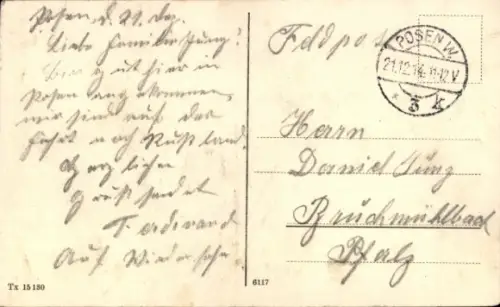 Posen d. 21. Dez.
Liebe Familie Jung!
Bin gut hier in
Posen angekommen,
wir sind auf der
Fahrt nach Rußland.
Herzlichen
Gruß sendet
Ferdinand
Auf Wiedersehn.
Tx 15 130
6117
Feldpost
POSEN W.
21.12.14. 11-12 V
* 3 k
Herrn
Daniel Jung
Bruchmühlbad
Pfalz